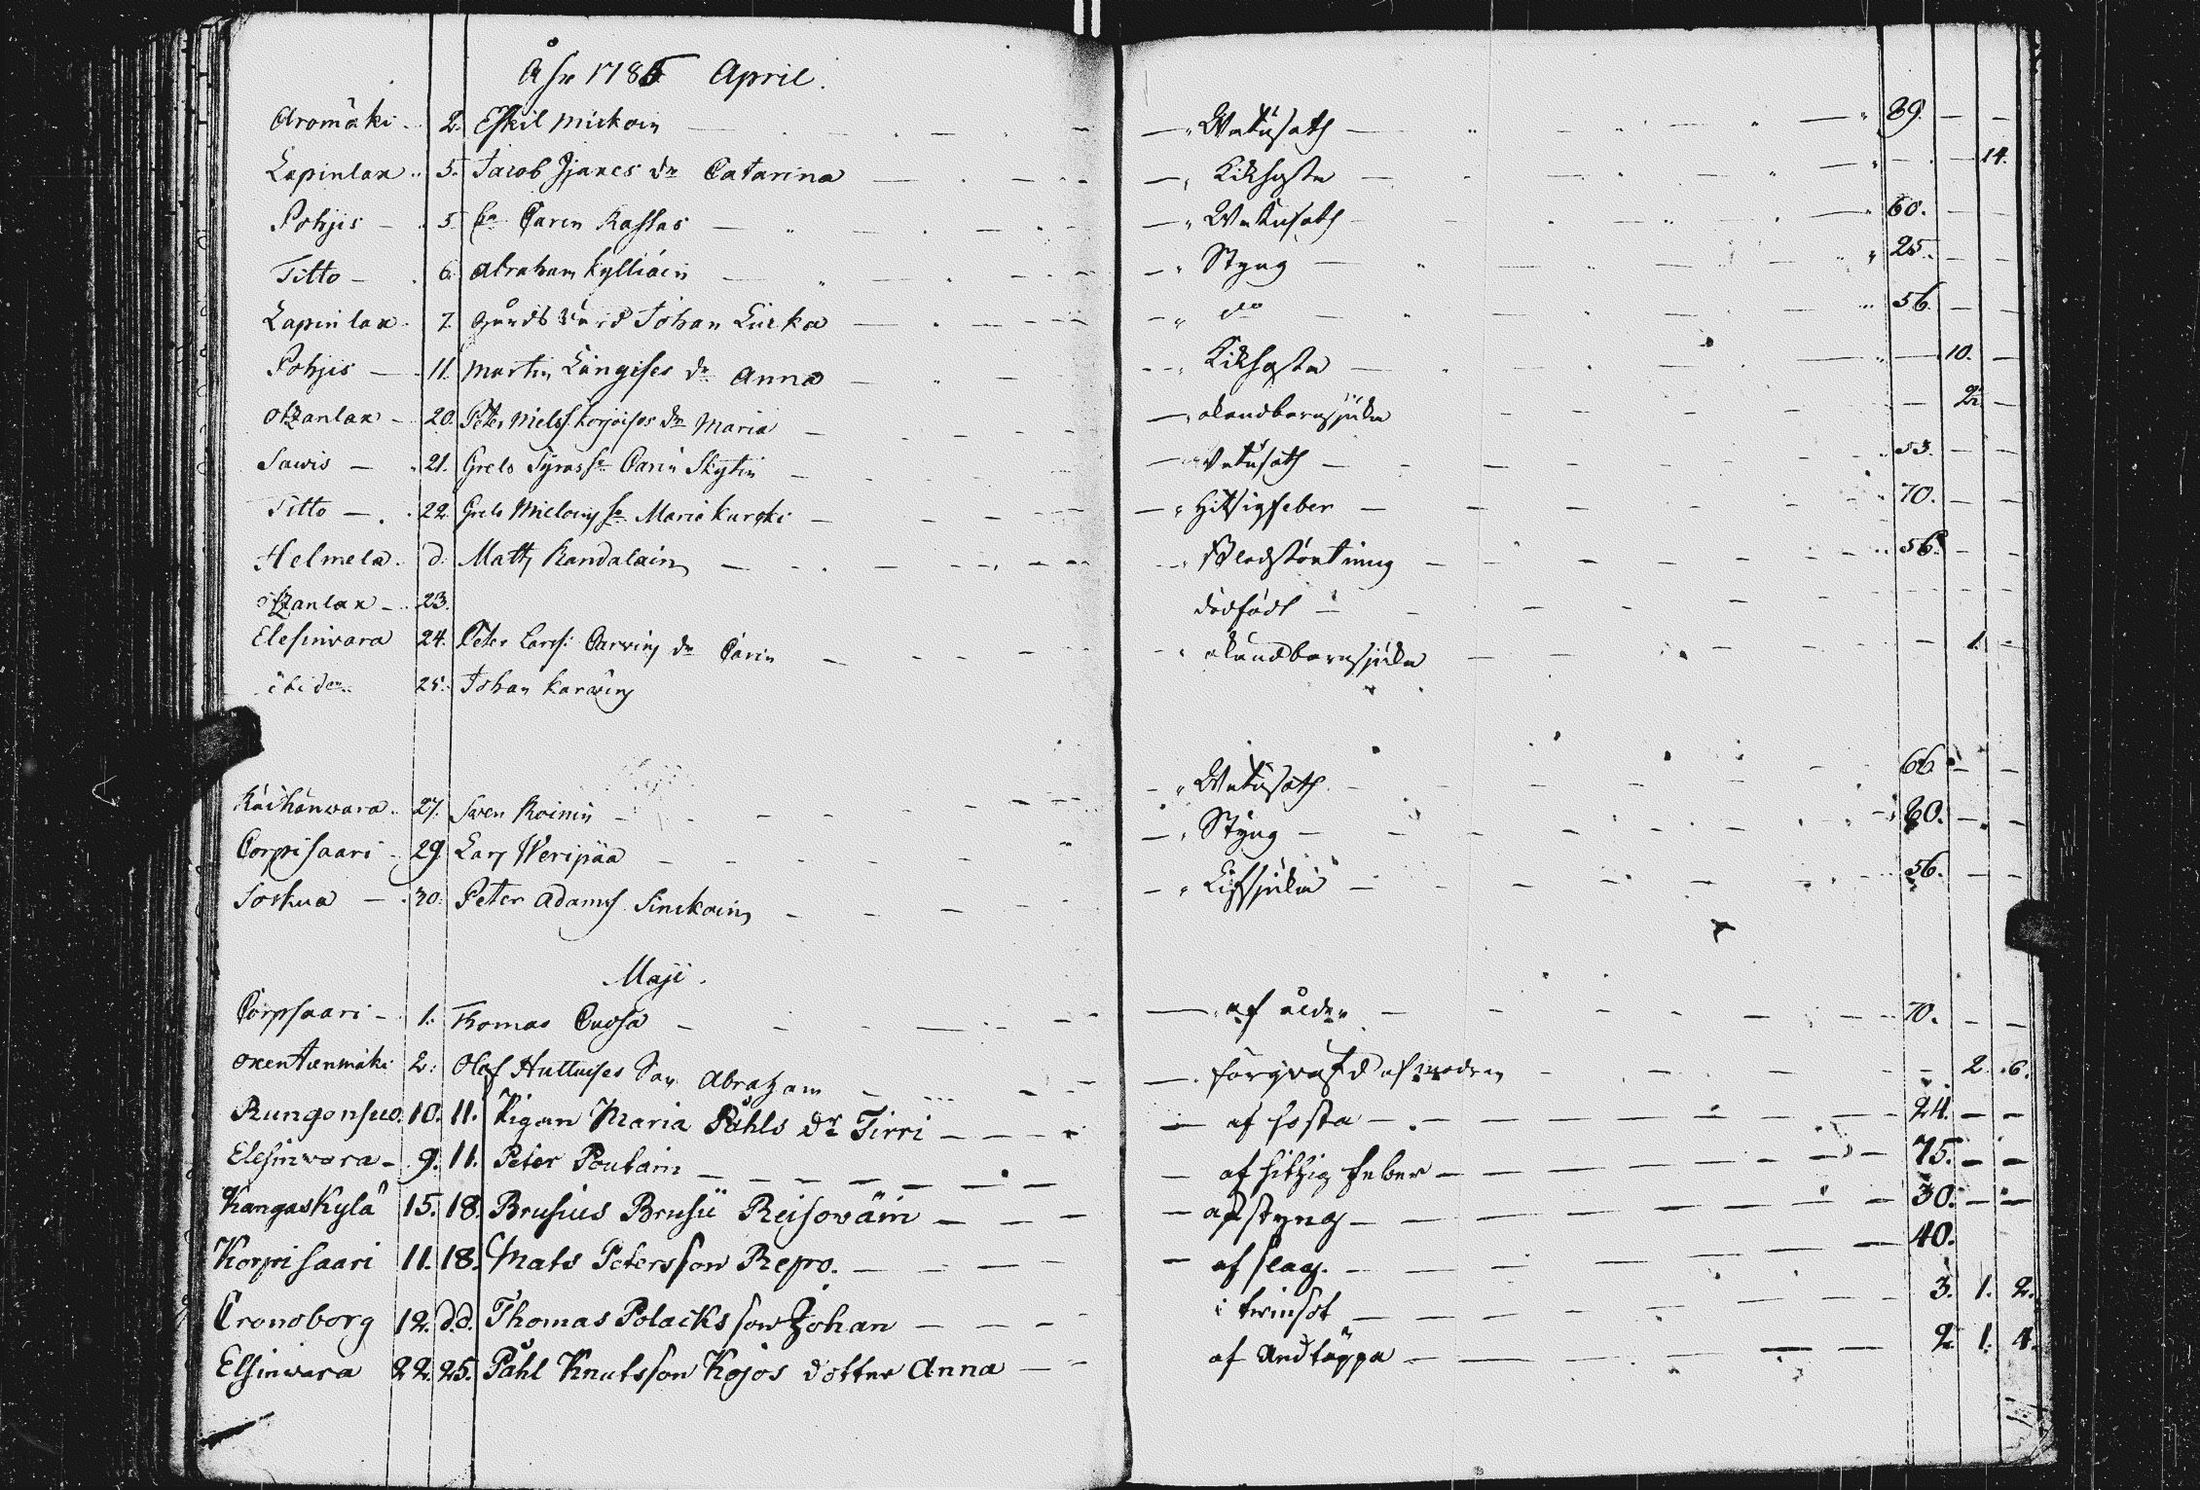 Åhr 1785 April.
Aromäki 2. Eskil Mickoin Watusoth 39.
Lapinlax 5. Jacob Ijäxes dr Catarina Kikhosta 14.
Pohjis 5. Carin Kassas Watusoth 60.
Titto 6. Abraham Kylliäin Styng 25.
Lapinlax 7. Johan Lurka do 56.
Pohjis 11. Martin Längises dr Anna Kikhosta 10.
Otzanlax 20. Peter Nielss. Korjoises dr Maria okändbarnsjuka 2.
Sawis 21. Grels Carin Skytin Watusoth 53.
Titto 22. Grels Mieloins Maria Kurki Hitsigfeber 70.
Helmela d. Matts Randalain Blodstörtning 56.
Otzanlax 23. dödfödt
Elesinwara 24. Peter Larss. Carwins dr Carin okändbarnsjuka 1.
ibidem 25. Johan Karwin
Käihänwara 27. Sven Roinin Watusoth 66
Corpisaari 29. Lars Weripää Styng 60.
Soskua 30. Peter Adamss. Sinckoin 56.
Maji.
Corpsaari 1. Thomas Cuosa af ålder 70.
Oxentienmäki 2. Olof Huttuises Son Abraham förqväfd af modren 2. 6.
Rungonsuo 10. 11. Pigan Maria Påhls dr Tirri af hosta 24.
Elesinwara 9. 11. Peter Poutain af hitzig feber 75.
Kangaskylä 15. 18. Brusius Brusii Reisowäin af styng 30.
Korpisaari 11. 18. Mats Petersson Repo. af slag. 40.
Cronoborg 12. d.d. Thomas Polacks son Johan i twinsot 3. 1. 2.
Elsinwara 22. 25. Påhl Knutsson Kojos dotter Anna af Andtäppa 2. 1. 4.